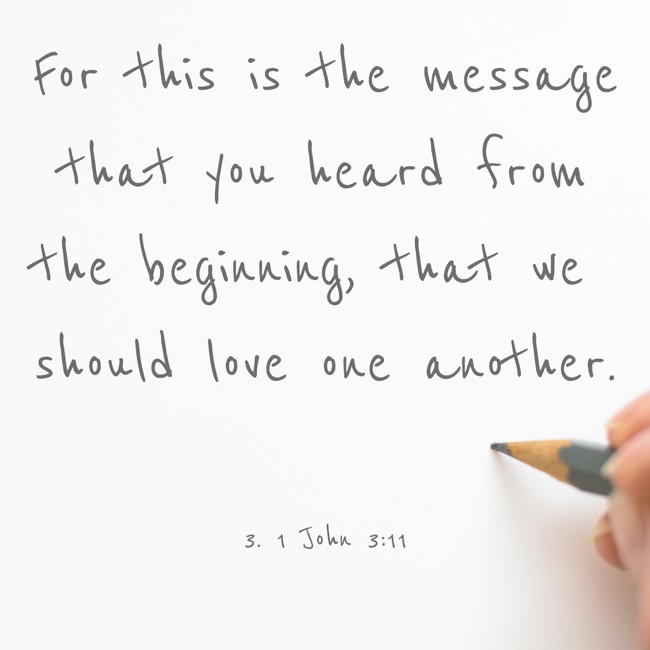 For this is the message
that you heard from
the beginning, that we
should love one another.
3. 1 John 3:11